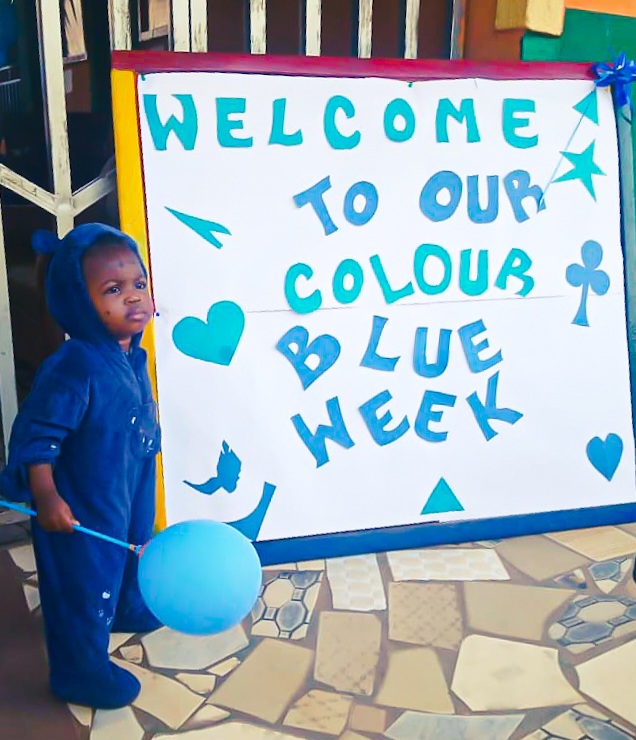 WELCOME
TO OUR
COLOUR
BLUE
WEEK